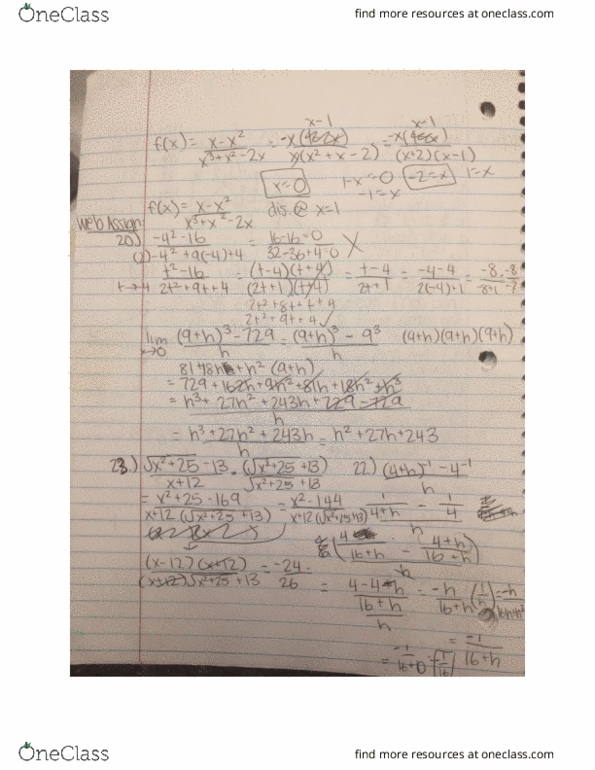 OneClass
find more resources at oneclass.com
x-1 x-1
f(x) = x-x² / x³+x²-2x = -x( / x(x²+x-2) = -x( / (x+2)(x-1)
x=0 1-x=0 -2=x 1=x
-1=x
f(x) = x-x² / x³+x²-2x dis.@ x=1
Web Assign
20.) -4²-16 / 2)-4²+9(-4)+4 = 16-16=0 / 32-36+4=0 X
t→-4 t²-16 / 2t²+9t+4 = (t-4)(t+4) / (2t+1)(t+4) = t-4 / 2t+1 = -4-4 / 2(-4)+1 = -8 / -8+1 -8 / -7
2t²+8t+t+4
2t²+9t+4 ✓
lim x→0 (9+h)³-729 / h = (9+h)³-9³ / h (9+h)(9+h)(9+h)
81+18h+h² (9+h)
= 729+162h+9h²+81h+18h²+h³
= h³+27h²+243h+729-729 / h
= h³+27h²+243h / h = h²+27h+243
23.) √x²+25-13 / x+12 • (√x²+25+13) / √x²+25+13 22.) (4+h)⁻¹-4⁻¹ / h
= x²+25-169 / x+12(√x²+25+13) = x²-144 / x+12(√x²+25+13) 1 / 4+h - 1 / 4 / h
(4 / 16+h - 4+h / 16+h) / h
(x-12)(x+12) / (x+12)√x²+25+13 = -24 / 26
4-4-h / 16+h / h = -h / 16+h (1/h) = -h / 16h+h²
= -1 / 16+h
= -1 / 16+0 -1/16
OneClass
find more resources at oneclass.com